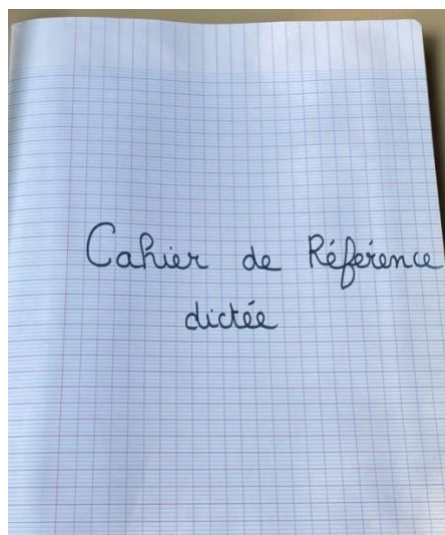 Cahier de Référence
dictée